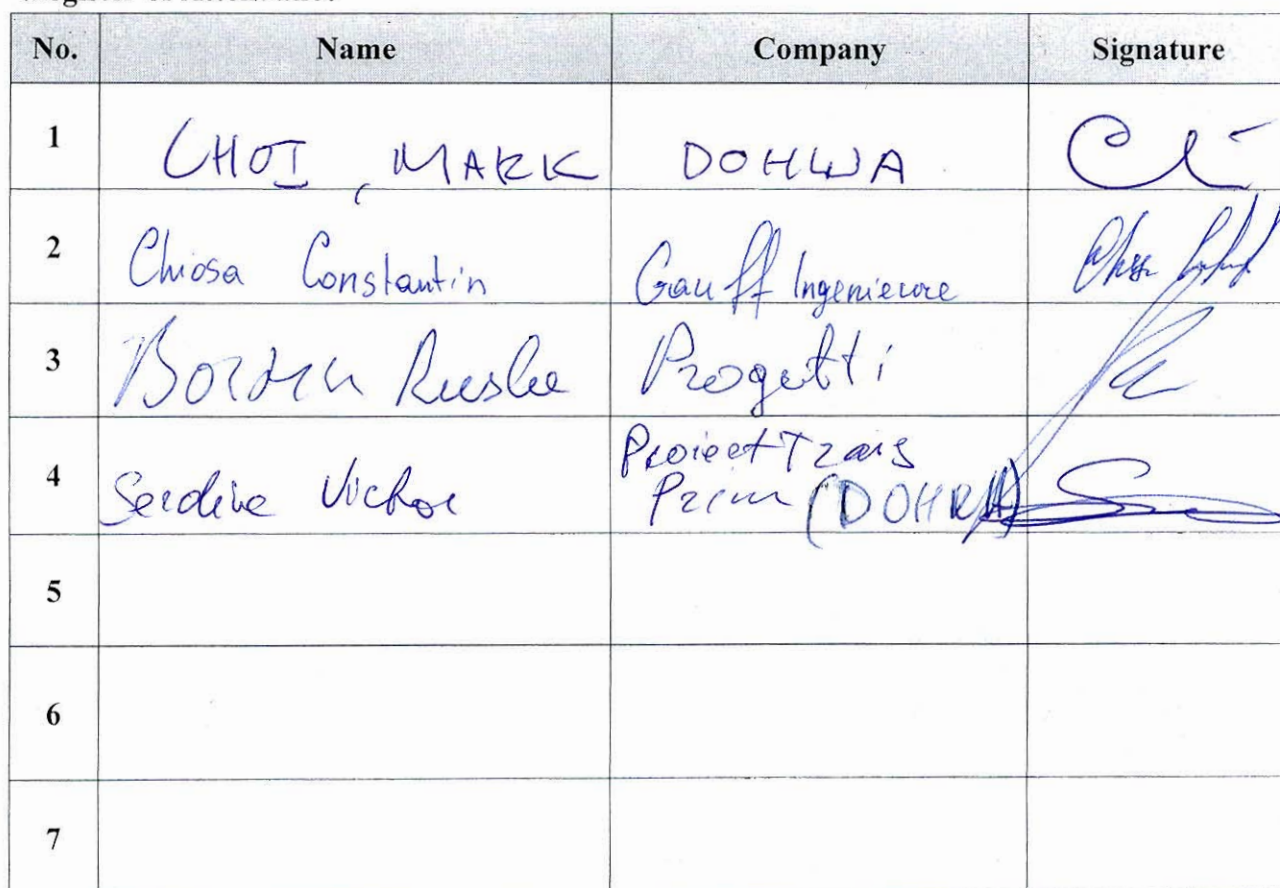 No. Name Company Signature
1 CHOI, MARK DOHWA
2 Chiosa Constantin Gauff Ingenieure
3 Progetti
4 Victor ProiectTrans
Prim (DOHWA)
5
6
7